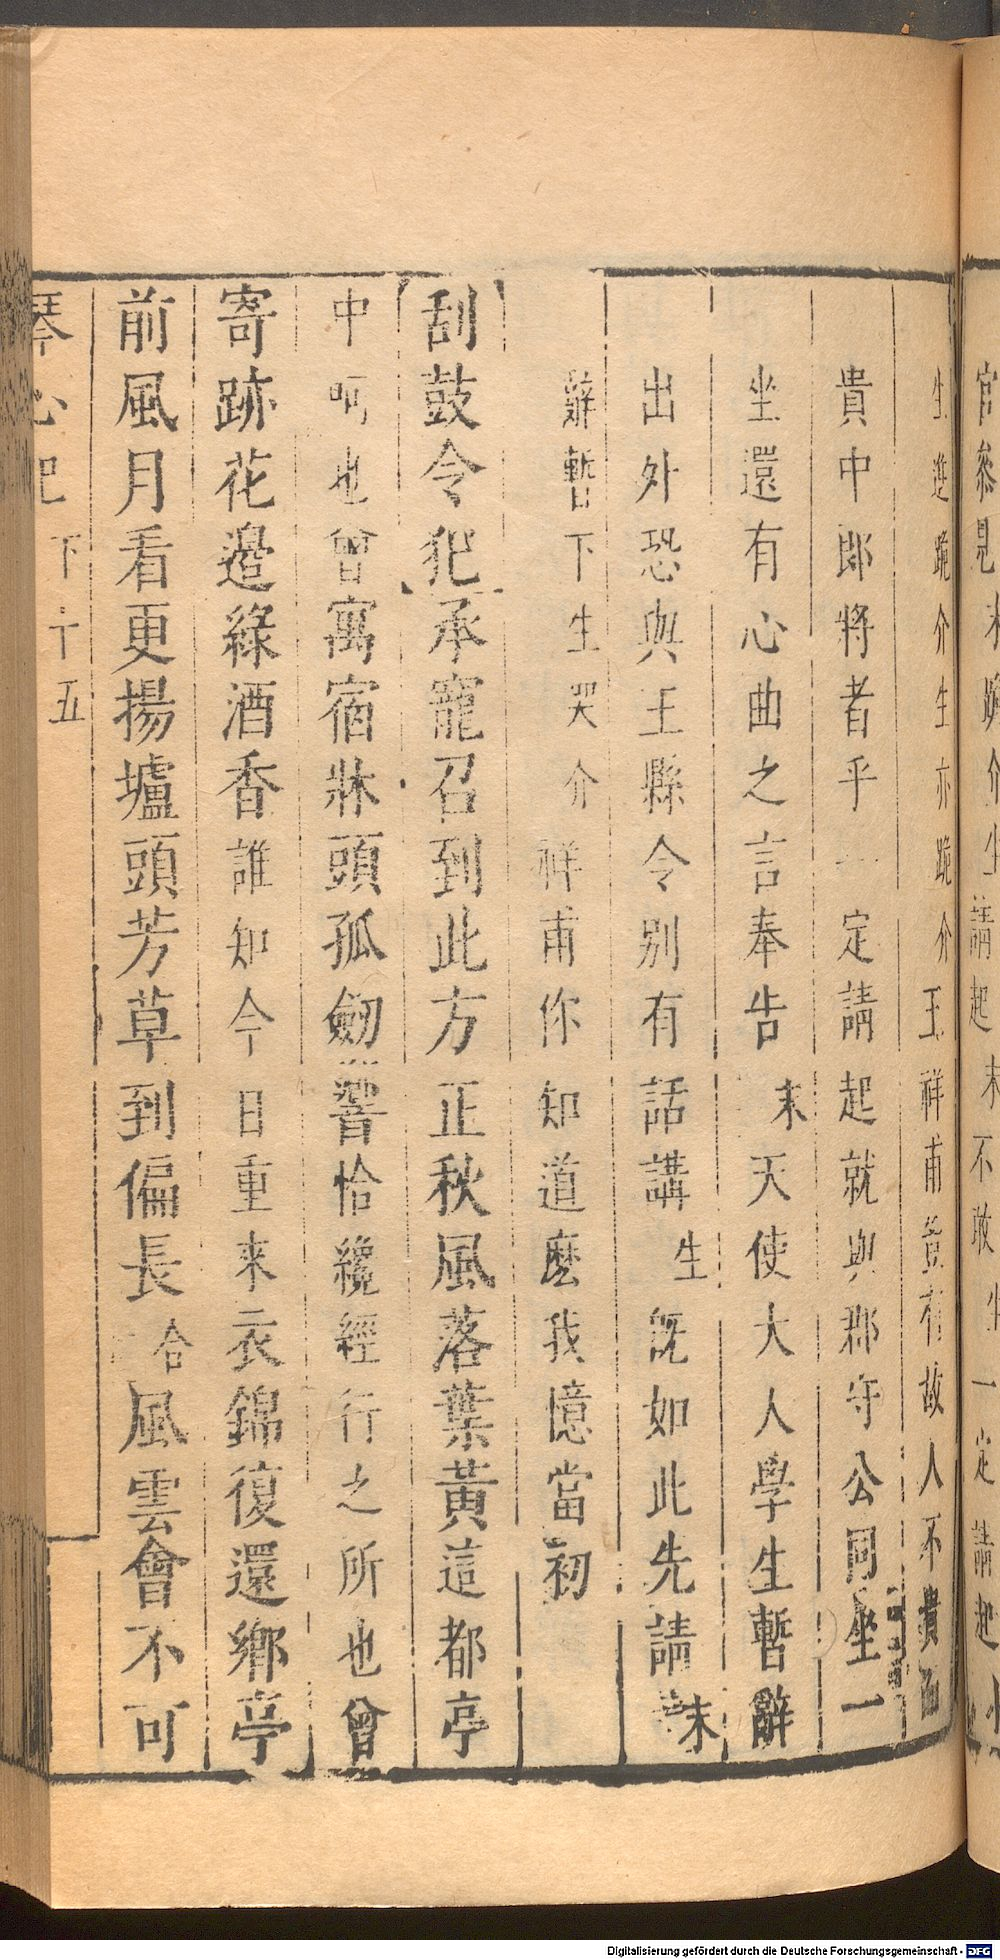 官參見末跪介生請起末不敢生一定請起
生進跪介生亦跪介王祥甫豈有故人不貴而
貴中郎將者乎一定請起就與郡守公同坐一
坐還有心曲之言奉告末天使大人學生暫辭
出外恐與王縣令別有話講生旣如此先請末
辭暫下生哭介祥甫你知道麼我憶當初
刮鼓令犯承寵召到此方正秋風落葉黃這都亭
中呵也曾寓宿牀頭孤劒響恰纔經行之所也曾
寄跡花邉綠酒香誰知今日重来衣錦復還鄉亭
前風月看更揚壚頭芳草到偏長合風雲會不可
琴心記下十五
Digitalisierung gefördert durch die Deutsche Forschungsgemeinschaft - DFG